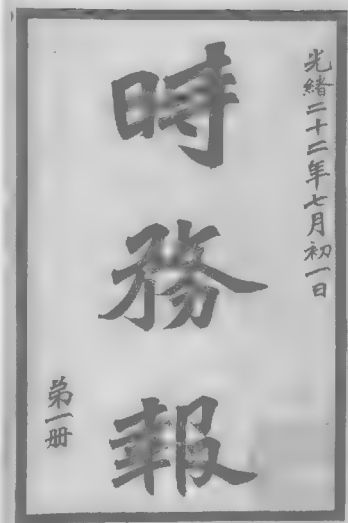 光緒二十二年七月初一日
時務報
第一册